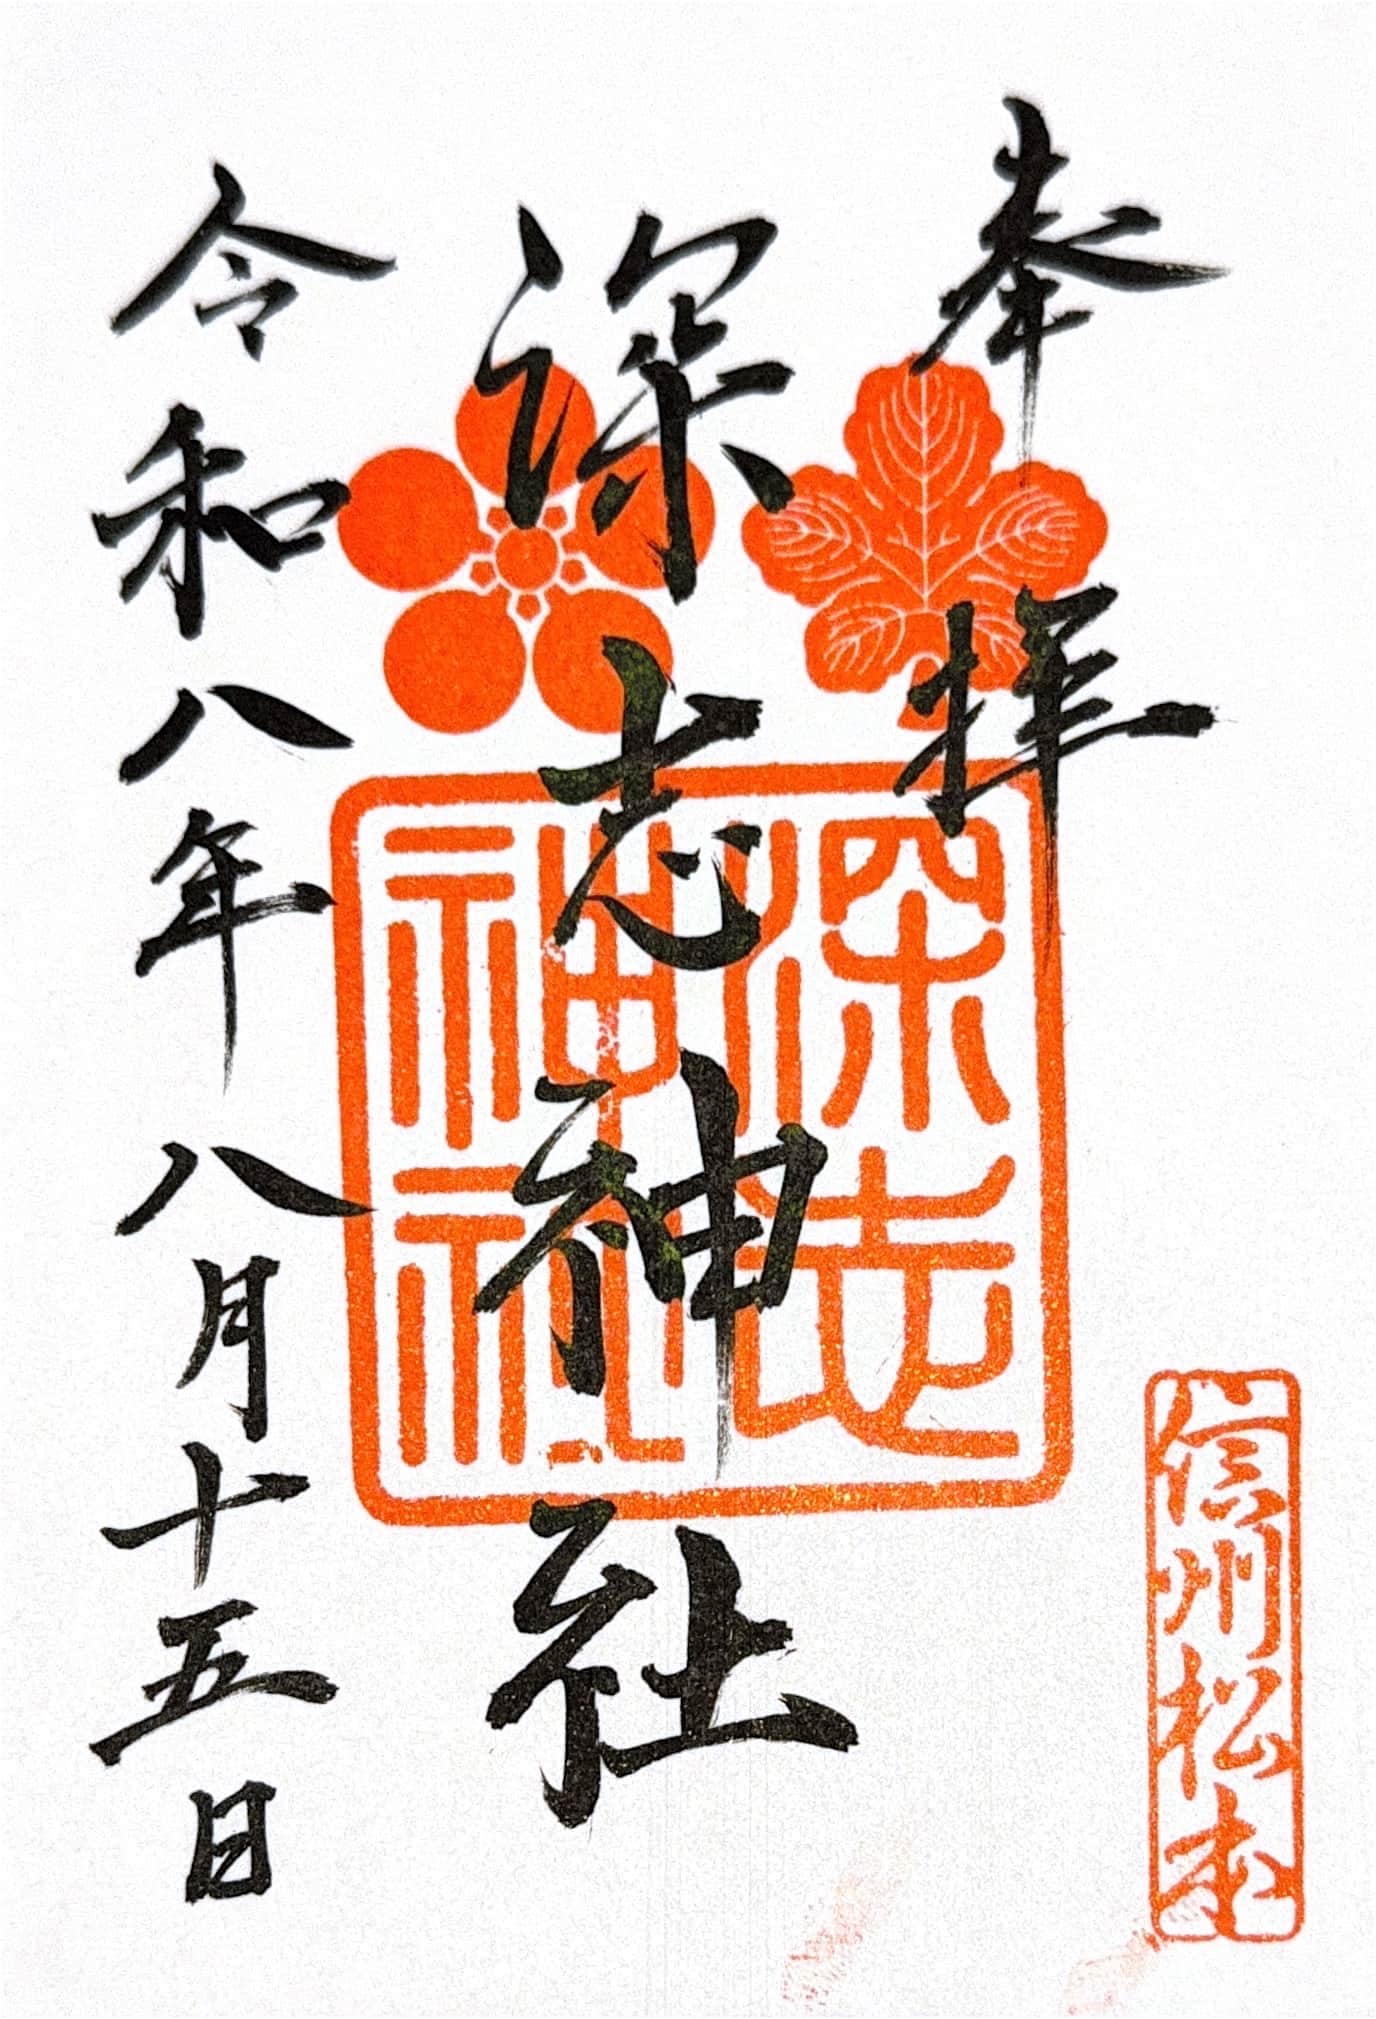 奉拝
信州松本
深志神社
深志
神社
令和八年八月十五日